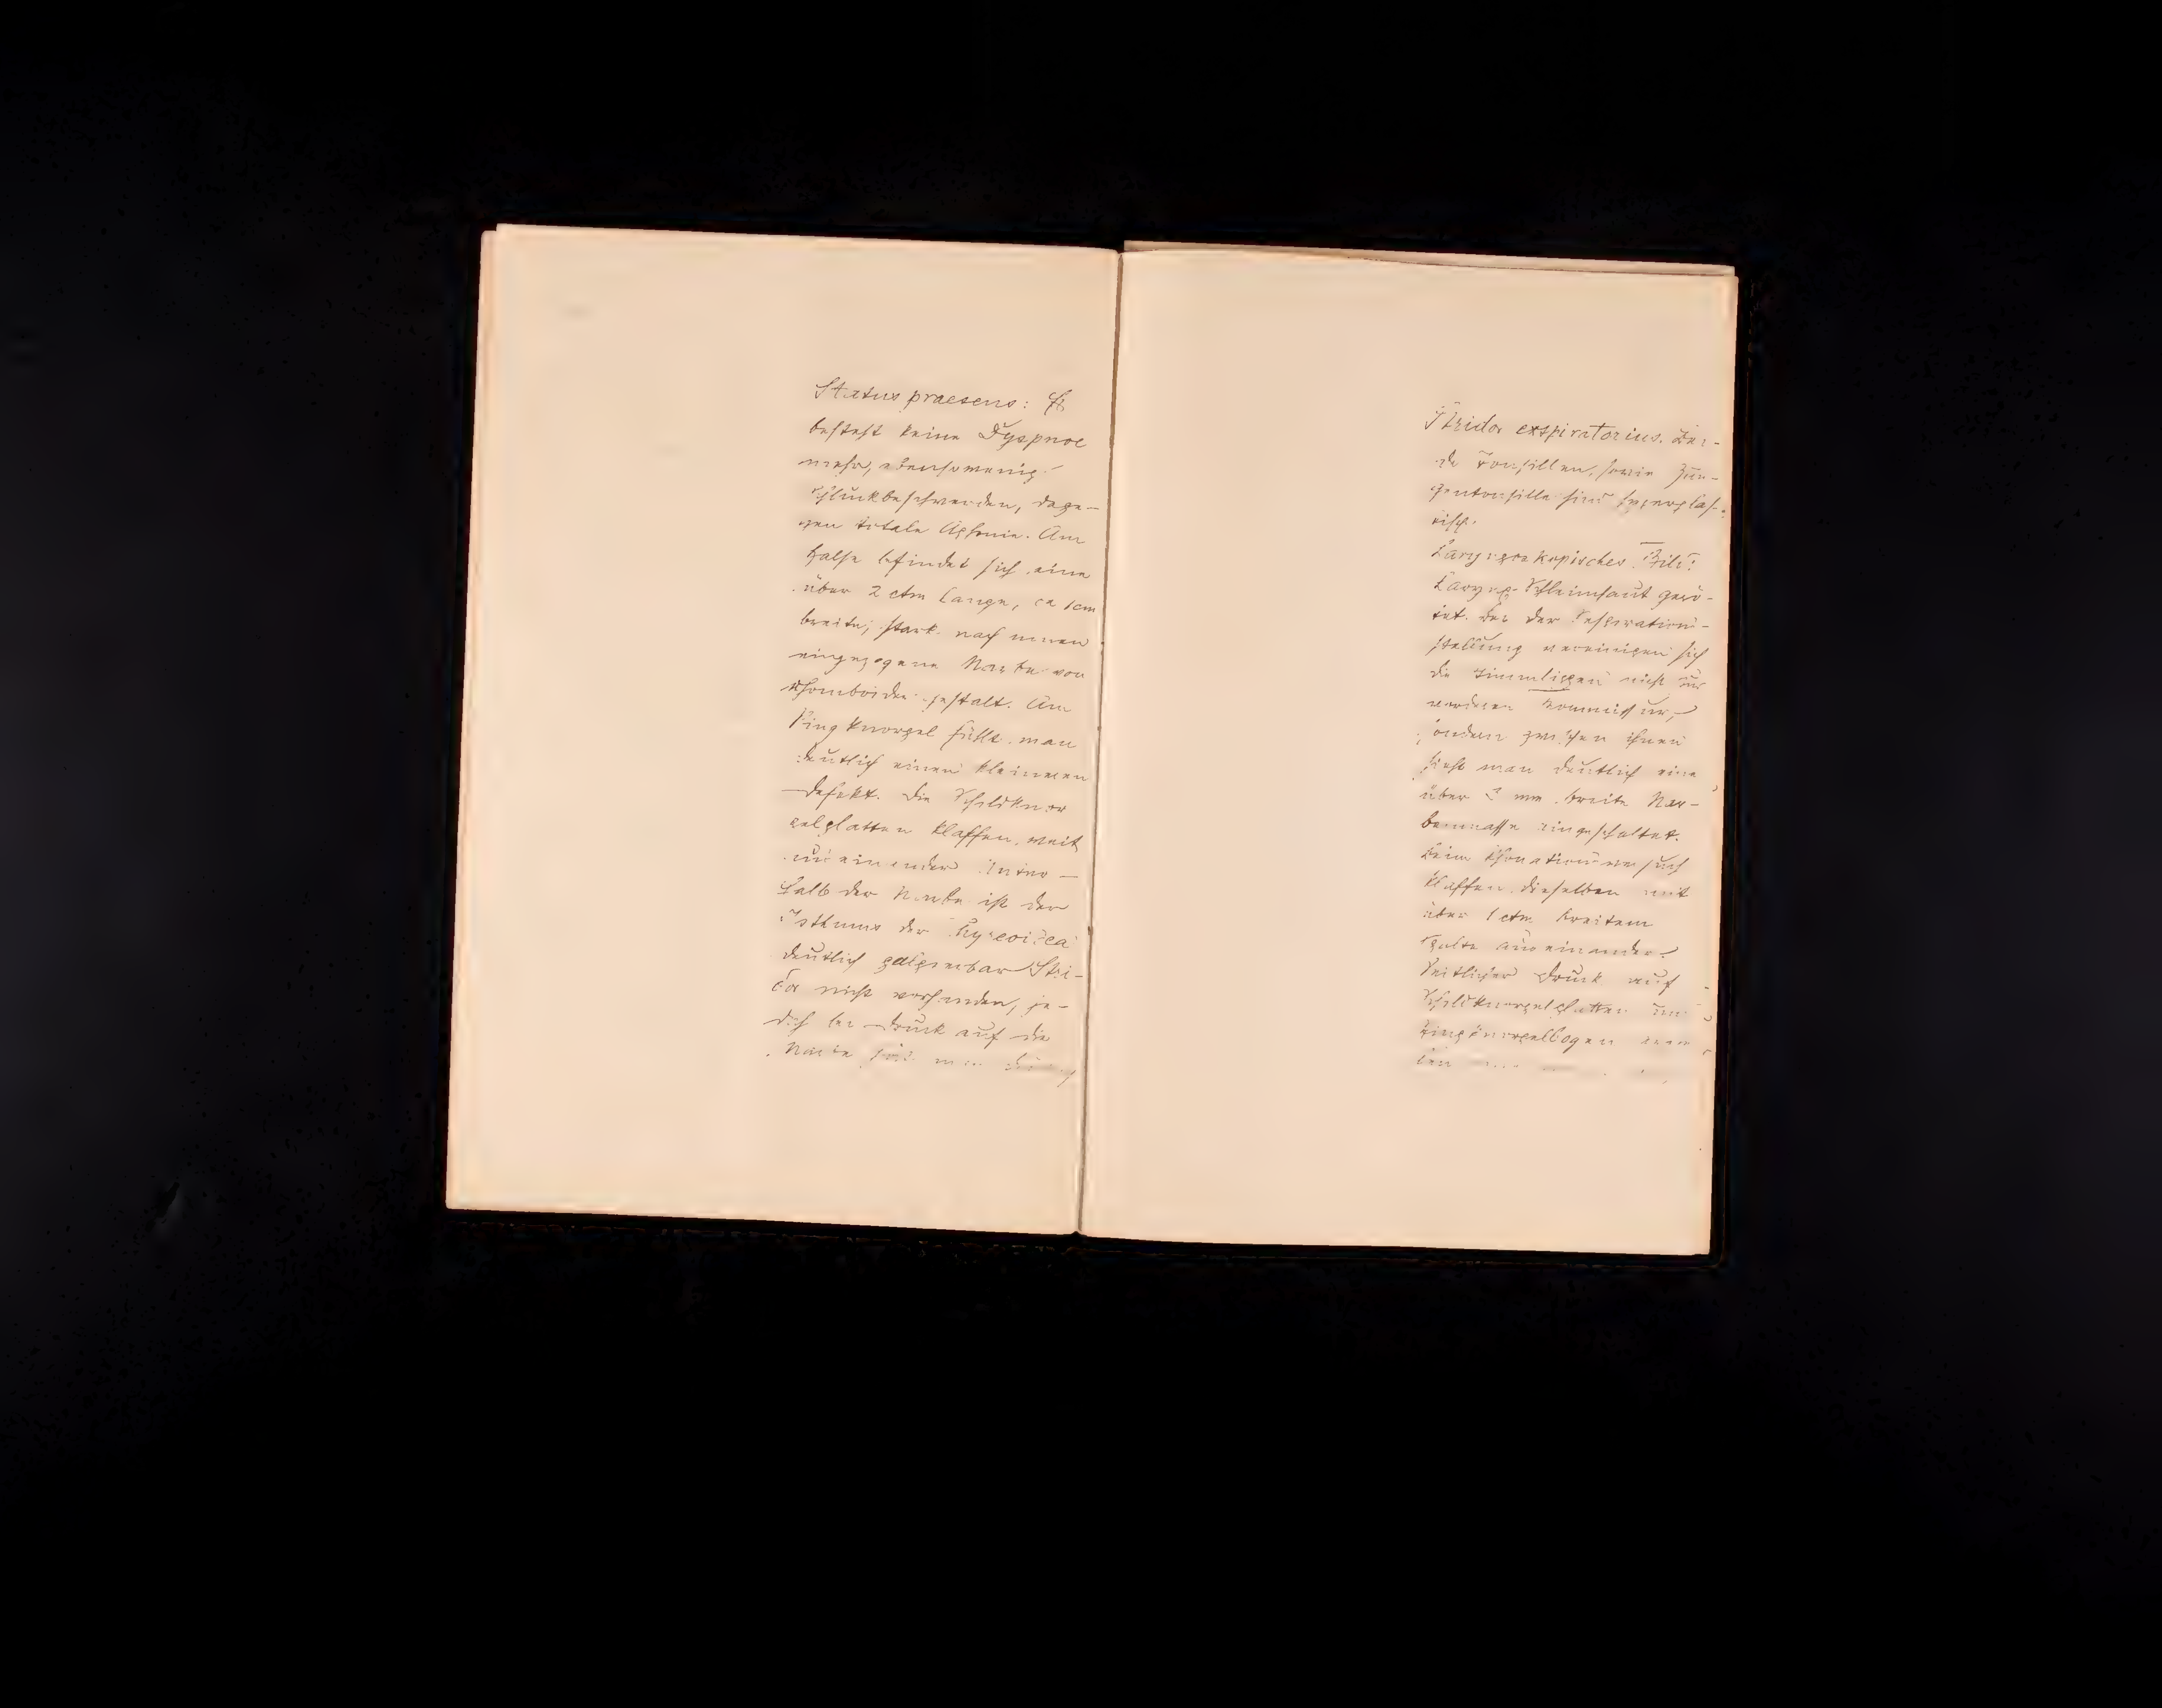 Status praesens: Es
besteht keine Dyspnoe
mehr, ebensowenig
Schluckbeschwerden, dage-
gen totale Aphonie. Am
Halse befindet sich eine
über 2 ctm lange, ca 1cm
breite, stark nach innen
eingezogene Narbe von
rhomboider Gestalt. Am
Ringknorpel fühlt man
deutlich einen kleineren
Defekt. Die Schildknor
pelplatten klaffen weit
auseinander. Unter-
halb der Narbe ist der
Isthmus der Thyreoidea
deutlich palpierbar. Stri-
dor nicht vorhanden, je-
doch bei Druck auf die
Narbe hört man
Stridor exspiratorius. Bei-
de Tonsillen, sowie Zun-
gentonsille sind hyperplas-
tisch.
Laryngoskopisches Bild:
Larynx-Schleimhaut gerö-
tet. Bei der Respirations-
stellung vereinigen sich
die Stimmlippen nicht zur
vorderen Kommissur,
sondern zwischen ihnen
sieht man deutlich eine
über mm breite Nar-
benmasse eingeschaltet.
Beim Phonationsversuch
klaffen dieselben mit
über 1 ctm breitem
Spalte auseinander.
Seitlicher Druck auf
Schildknorpelplatten und
Ringknorpelbogen